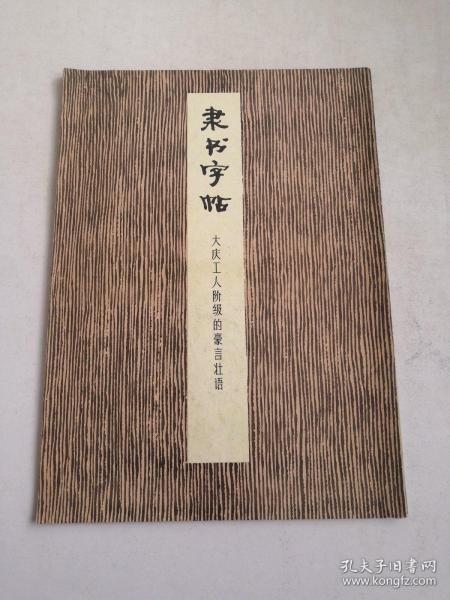 隶书字帖
大庆工人阶级的豪言壮语
孔夫子旧书网
www.kongfz.com